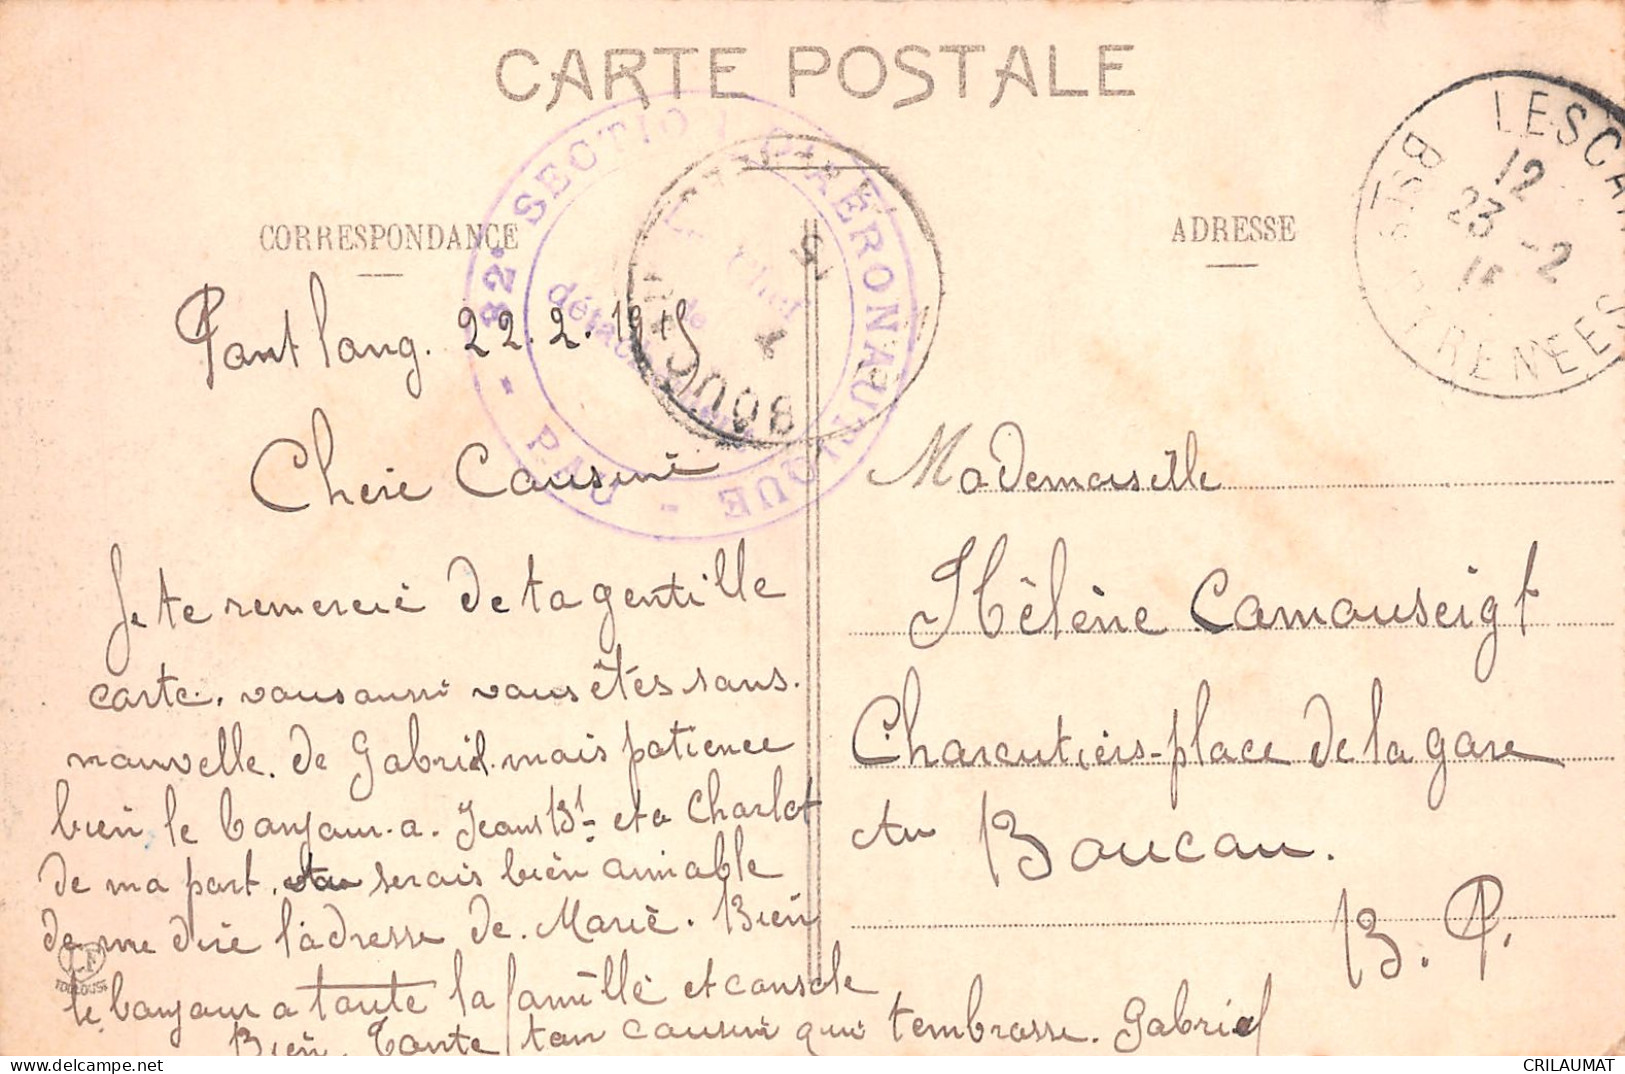 CARTE POSTALE
CORRESPONDANCE
ADRESSE
82e SECTION D'AÉRONAUTIQUE
- PAU -
Le Chef
de
détachement
BOUCAU
LESCAR
12
23 -2
15
BSES PYRENEES
Pont long. 22.2.1915
Chere Cousine
Je te remercie de ta gentille
carte. vous aussi vous êtes sans.
nouvelle. de Gabriel. mais patience
bien le bonjour. a. Jean Bt et a Charlot
de ma part. tu serais bien aimable
de me dire l'adresse de. Marie. Bien
le bonjour a toute la famille et console
Bien. Tante ton cousin qui t'embrasse. Gabriel
Mademoiselle
Hélène Camouseigt
Charcutiers-place de la gare
Au Boucau.
B. P.
LF
TOULOUSE
CRILAUMAT